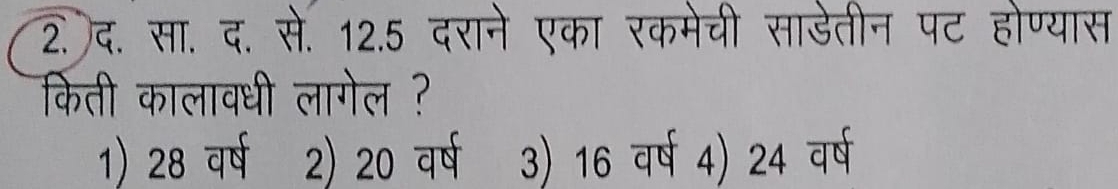 2. द. सा. द. से. 12.5 दराने एका रकमेची साडेतीन पट होण्यास
किती कालावधी लागेल ?
1) 28 वर्ष 2) 20 वर्ष 3) 16 वर्ष 4) 24 वर्ष